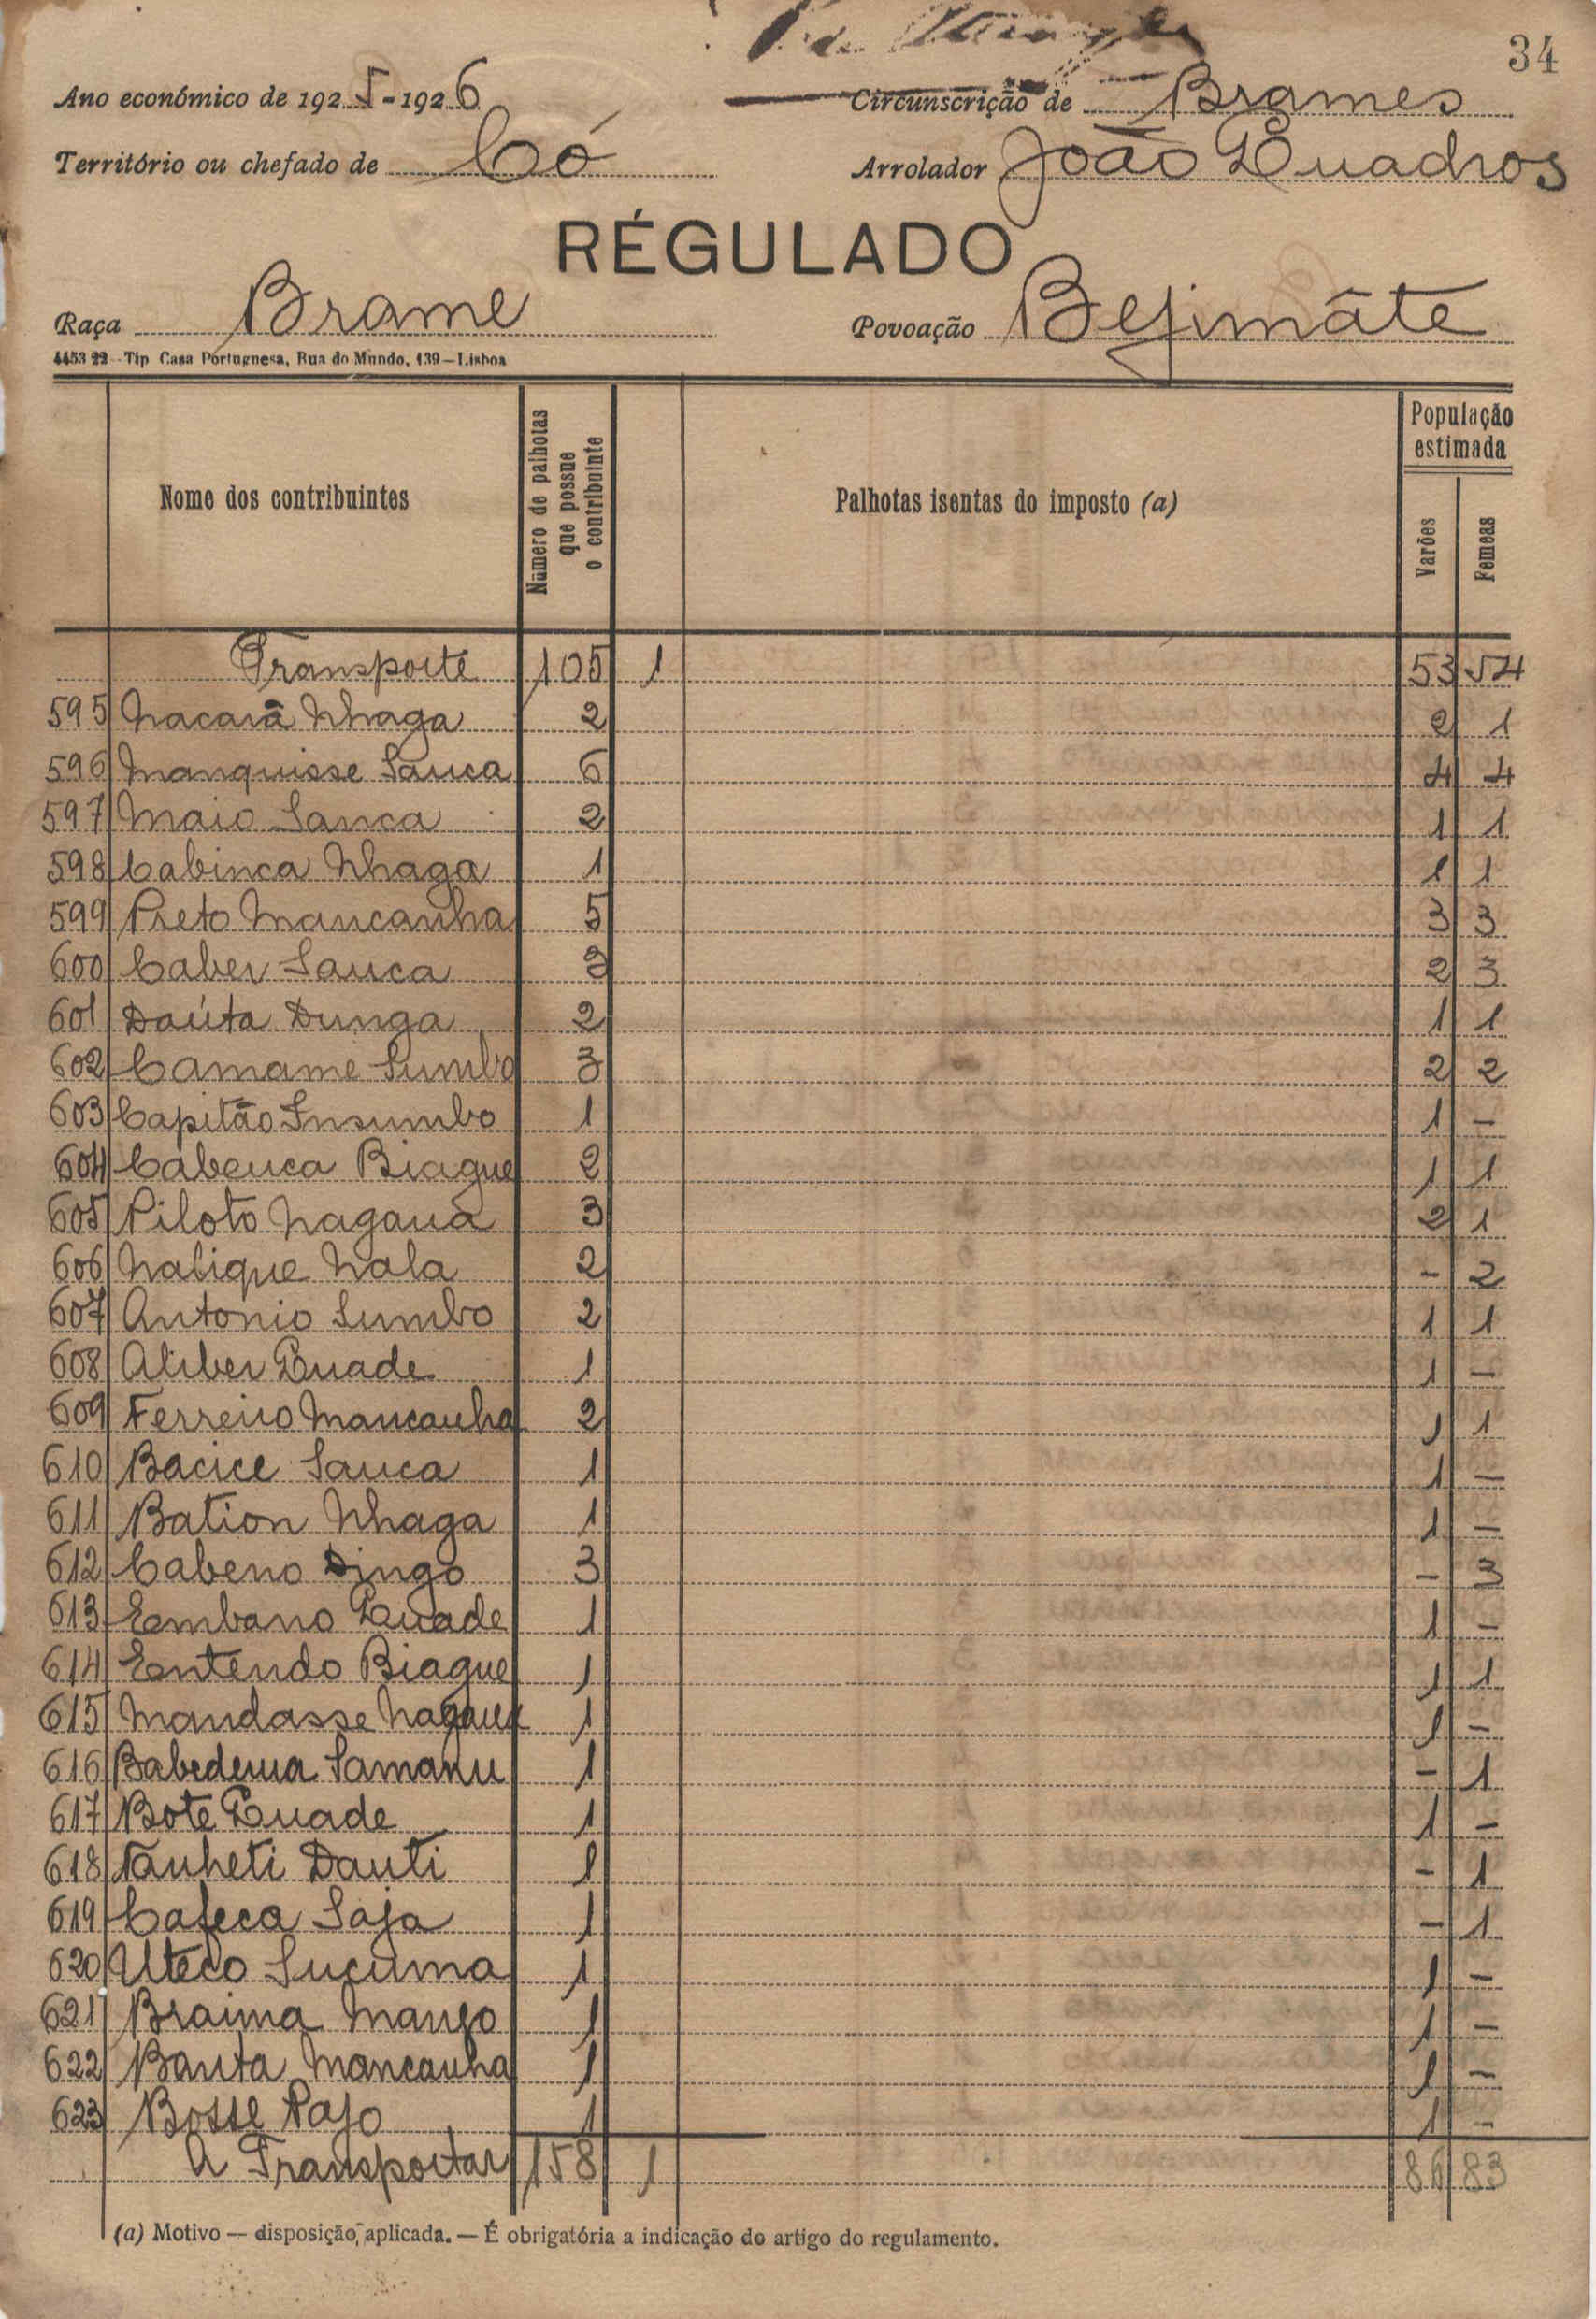 34
Ano económico de 1925-1926 Circunscrição de Brames
Território ou chefado de Có Arrolador João Quadros
RÉGULADO
Raça Brame Povoação Bejimâte
4453 22 - Tip Casa Portuguesa, Rua do Mundo, 139 - Lisboa
Nome dos contribuintes Número de palhotas que possue o contribuinte Palhotas isentas do imposto (a) População estimada
Varões Femeas
Transporte 105 1 53 54
595 Nacaiã Nhaga 2 2 1
596 Manquisse Sanca 6 4 4
597 Maio Sanca 2 1 1
598 Cabinca Nhaga 1 1 1
599 Preto Mancanha 5 3 3
600 Caber Sanca 3 2 3
601 Daúta Dunga 2 1 1
602 Camame Sumbo 3 2 2
603 Capitão Insumbo 1 1 -
604 Cabenca Biague 2 1 1
605 Piloto Nagana 3 2 1
606 Nalique Nala 2 - 2
607 Antonio Sumbo 2 1 1
608 Aliber Quade 1 1 -
609 Ferreiro Mancanha 2 1 1
610 Bacice Sanca 1 1 -
611 Bation Nhaga 1 1 -
612 Cabeno Dingo 3 - 3
613 Embano Quade 1 1 -
614 Entendo Biague 1 1 1
615 Mandasse 1 1 -
616 Babedema Samanu 1 - 1
617 Bote Quade 1 1 -
618 Nanheti Dauti 1 - 1
619 Cafeca Saja 1 - 1
620 Uteco Sucuma 1 1 -
621 Braima Mango 1 1 -
622 Banta Mancanha 1 1 -
623 Bosse Pajo 1 1 -
A Transportar 158 1 86 83
(a) Motivo — disposição, aplicada. — É obrigatória a indicação do artigo do regulamento.